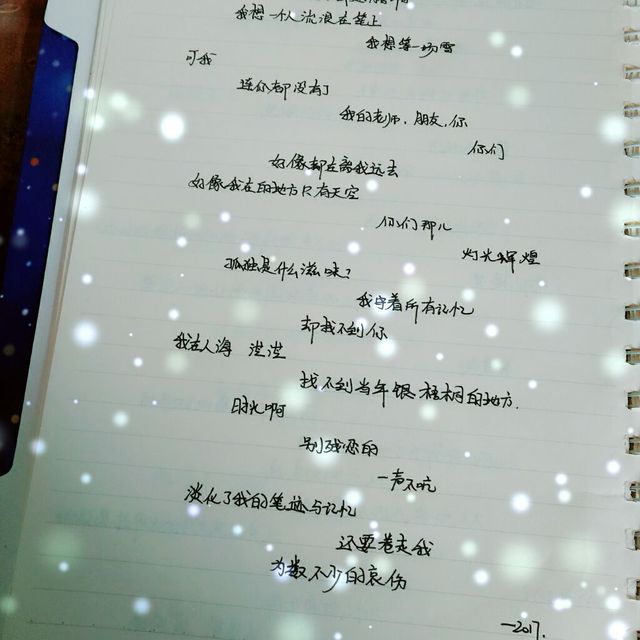 我想一个人流浪在楚上
我想等一场雪
可我
连你都没有了
我的老师，朋友，你
你们
好像都在离我远去
好像我在的地方只有天空
你们那儿
灯火辉煌
孤独是什么滋味？
我守着所有记忆
却找不到你
我在人海茫茫
找不到当年银梧桐的地方.
时光啊
别残恋的
一声不吭
淡化了我的笔迹与记忆
还要卷走我
为数不少的哀伤
—2017.